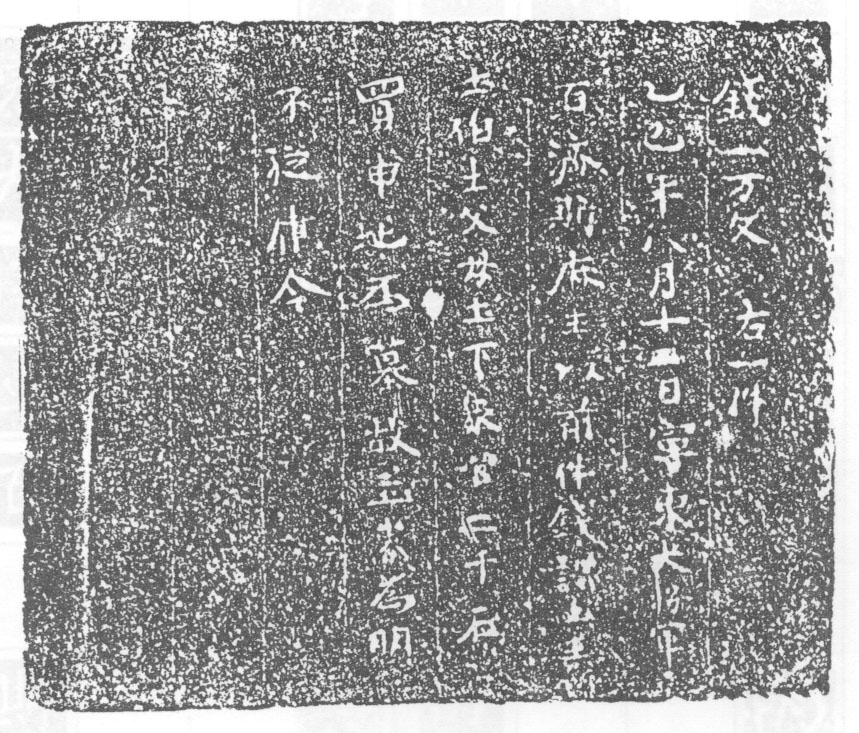 錢一万文 右一件
乙巳年八月十二日寧東大將軍
百濟斯麻王以前件錢詢土王
土伯土父母上下衆官二千石
買申地爲墓故立券爲明
不從律令